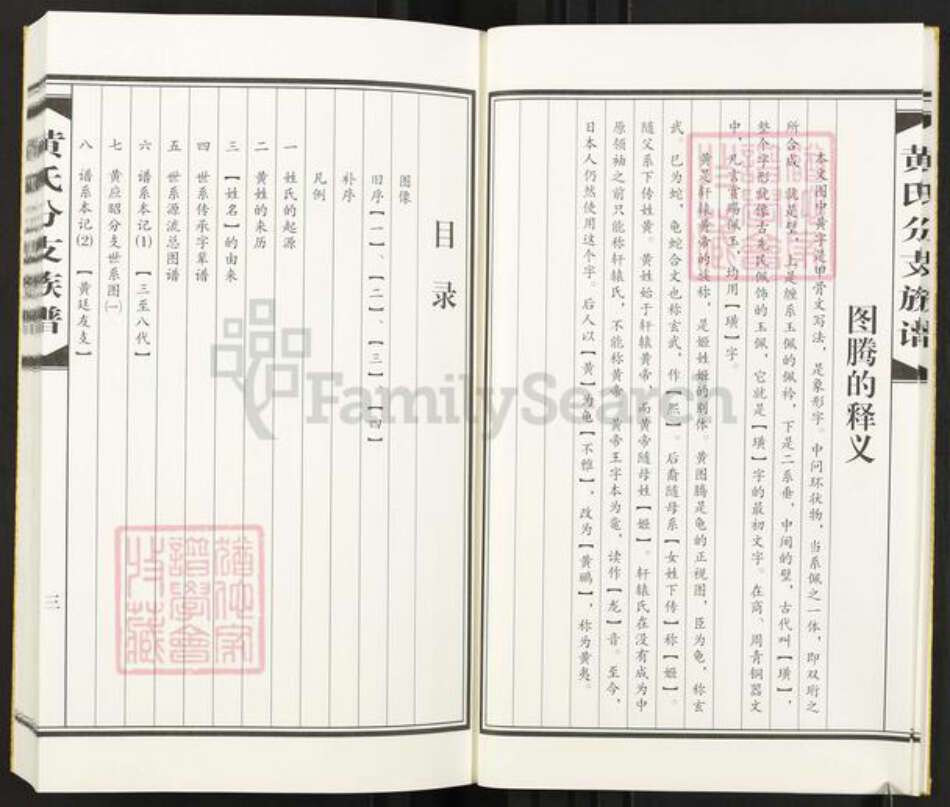 黄氏分支族谱
图腾的释义
本文图中黄字是甲骨文写法，是象形字。中间环状物，当系佩之一体，即双珩之
所合成，就是璧，上是缠系玉佩的佩衿，下是二系垂，中间的璧，古代叫【璜】，
整个字形就像古先民佩饰的玉佩，它就是【璜】字的最初文字。在商、周青铜器文
中，凡言赏赐佩玉，均用【璜】字。
黄是轩辕黄帝的族称，是姬姓姬的别体。黄图腾是龟的正视图，臣为龟，称玄
武。巳为蛇，龟蛇合文也称玄武，作【熙】。后裔随母系【女姓下传】称【姬】。
随父系下传姓黄。黄姓始于轩辕黄帝，而黄帝随母姓【姬】。轩辕氏在没有成为中
原领袖之前只能称轩辕氏，不能称黄帝。黄帝王字本为龟，读作【龙】音。至今，
日本人仍然使用这个字。后人以【黄】为龟【不雅】，改为【黄鹂】，称为黄夷。
目录
图像
旧序【一】、【二】、【三】、【四】
补序
凡例
一 姓氏的起源
二 黄姓的来历
三 【姓名】的由来
四 世系传承字辈谱
五 世系源流总图谱
六 谱系本记⑴ 【三至八代】
七 黄应昭分支世系图㈠
八 谱系本记⑵ 【黄廷友支】
黄氏分支族谱
三
FamilySearch